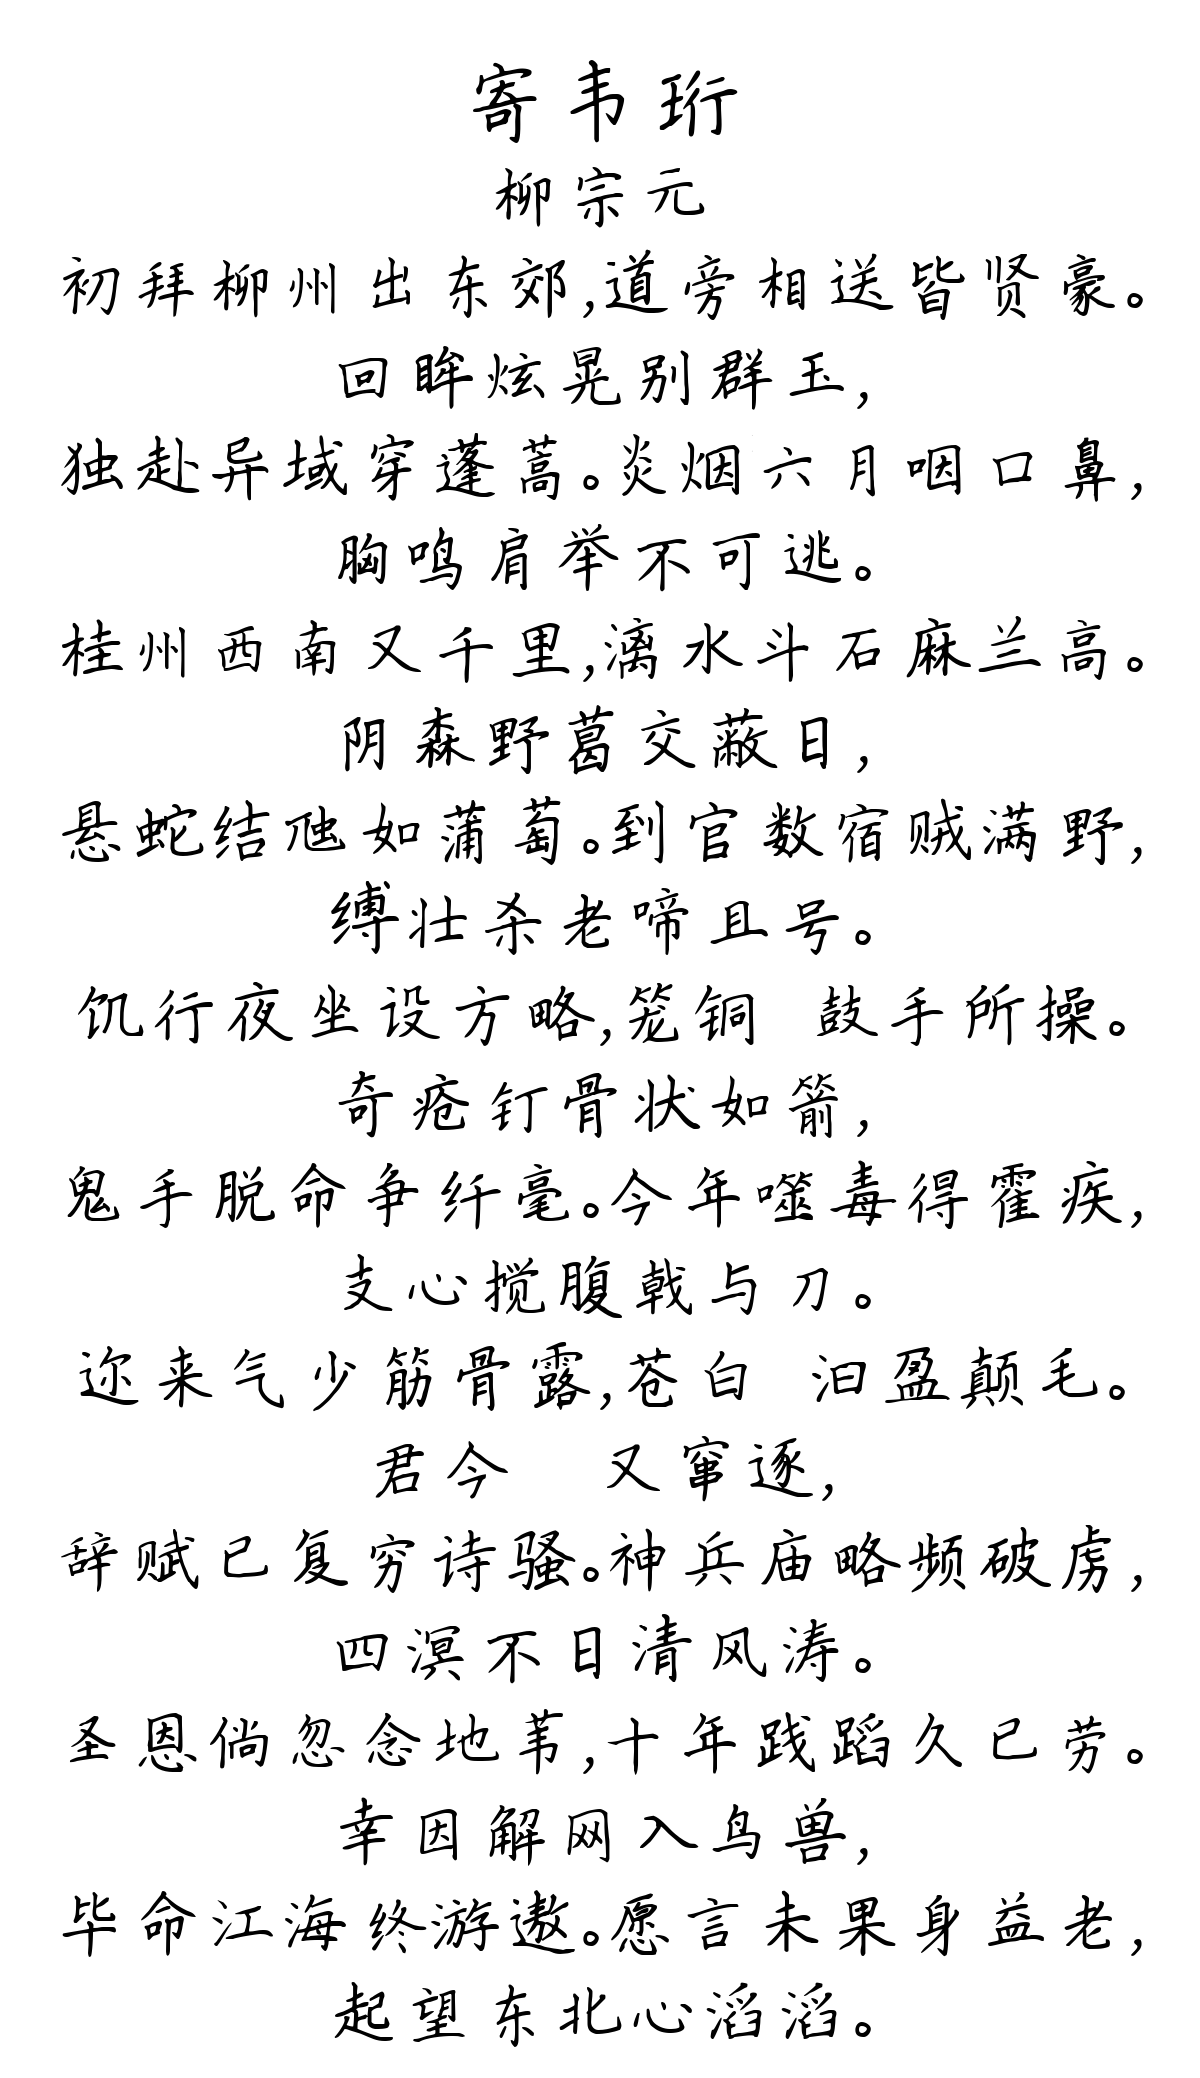 寄韦珩
柳宗元
初拜柳州出东郊,道旁相送皆贤豪。
回眸炫晃别群玉,
独赴异域穿蓬蒿。炎烟六月咽口鼻,
胸鸣肩举不可逃。
桂州西南又千里,漓水斗石麻兰高。
阴森野葛交蔽日,
悬蛇结虺如蒲萄。到官数宿贼满野,
缚壮杀老啼且号。
饥行夜坐设方略,笼铜 鼓手所操。
奇疮钉骨状如箭,
鬼手脱命争纤毫。今年噬毒得霍疾,
支心搅腹戟与刀。
迩来气少筋骨露,苍白 汩盈颠毛。
君今 又窜逐,
辞赋已复穷诗骚。神兵庙略频破虏,
四溟不日清风涛。
圣恩倘忽念地苇,十年践蹈久已劳。
幸因解网入鸟兽,
毕命江海终游遨。愿言未果身益老,
起望东北心滔滔。